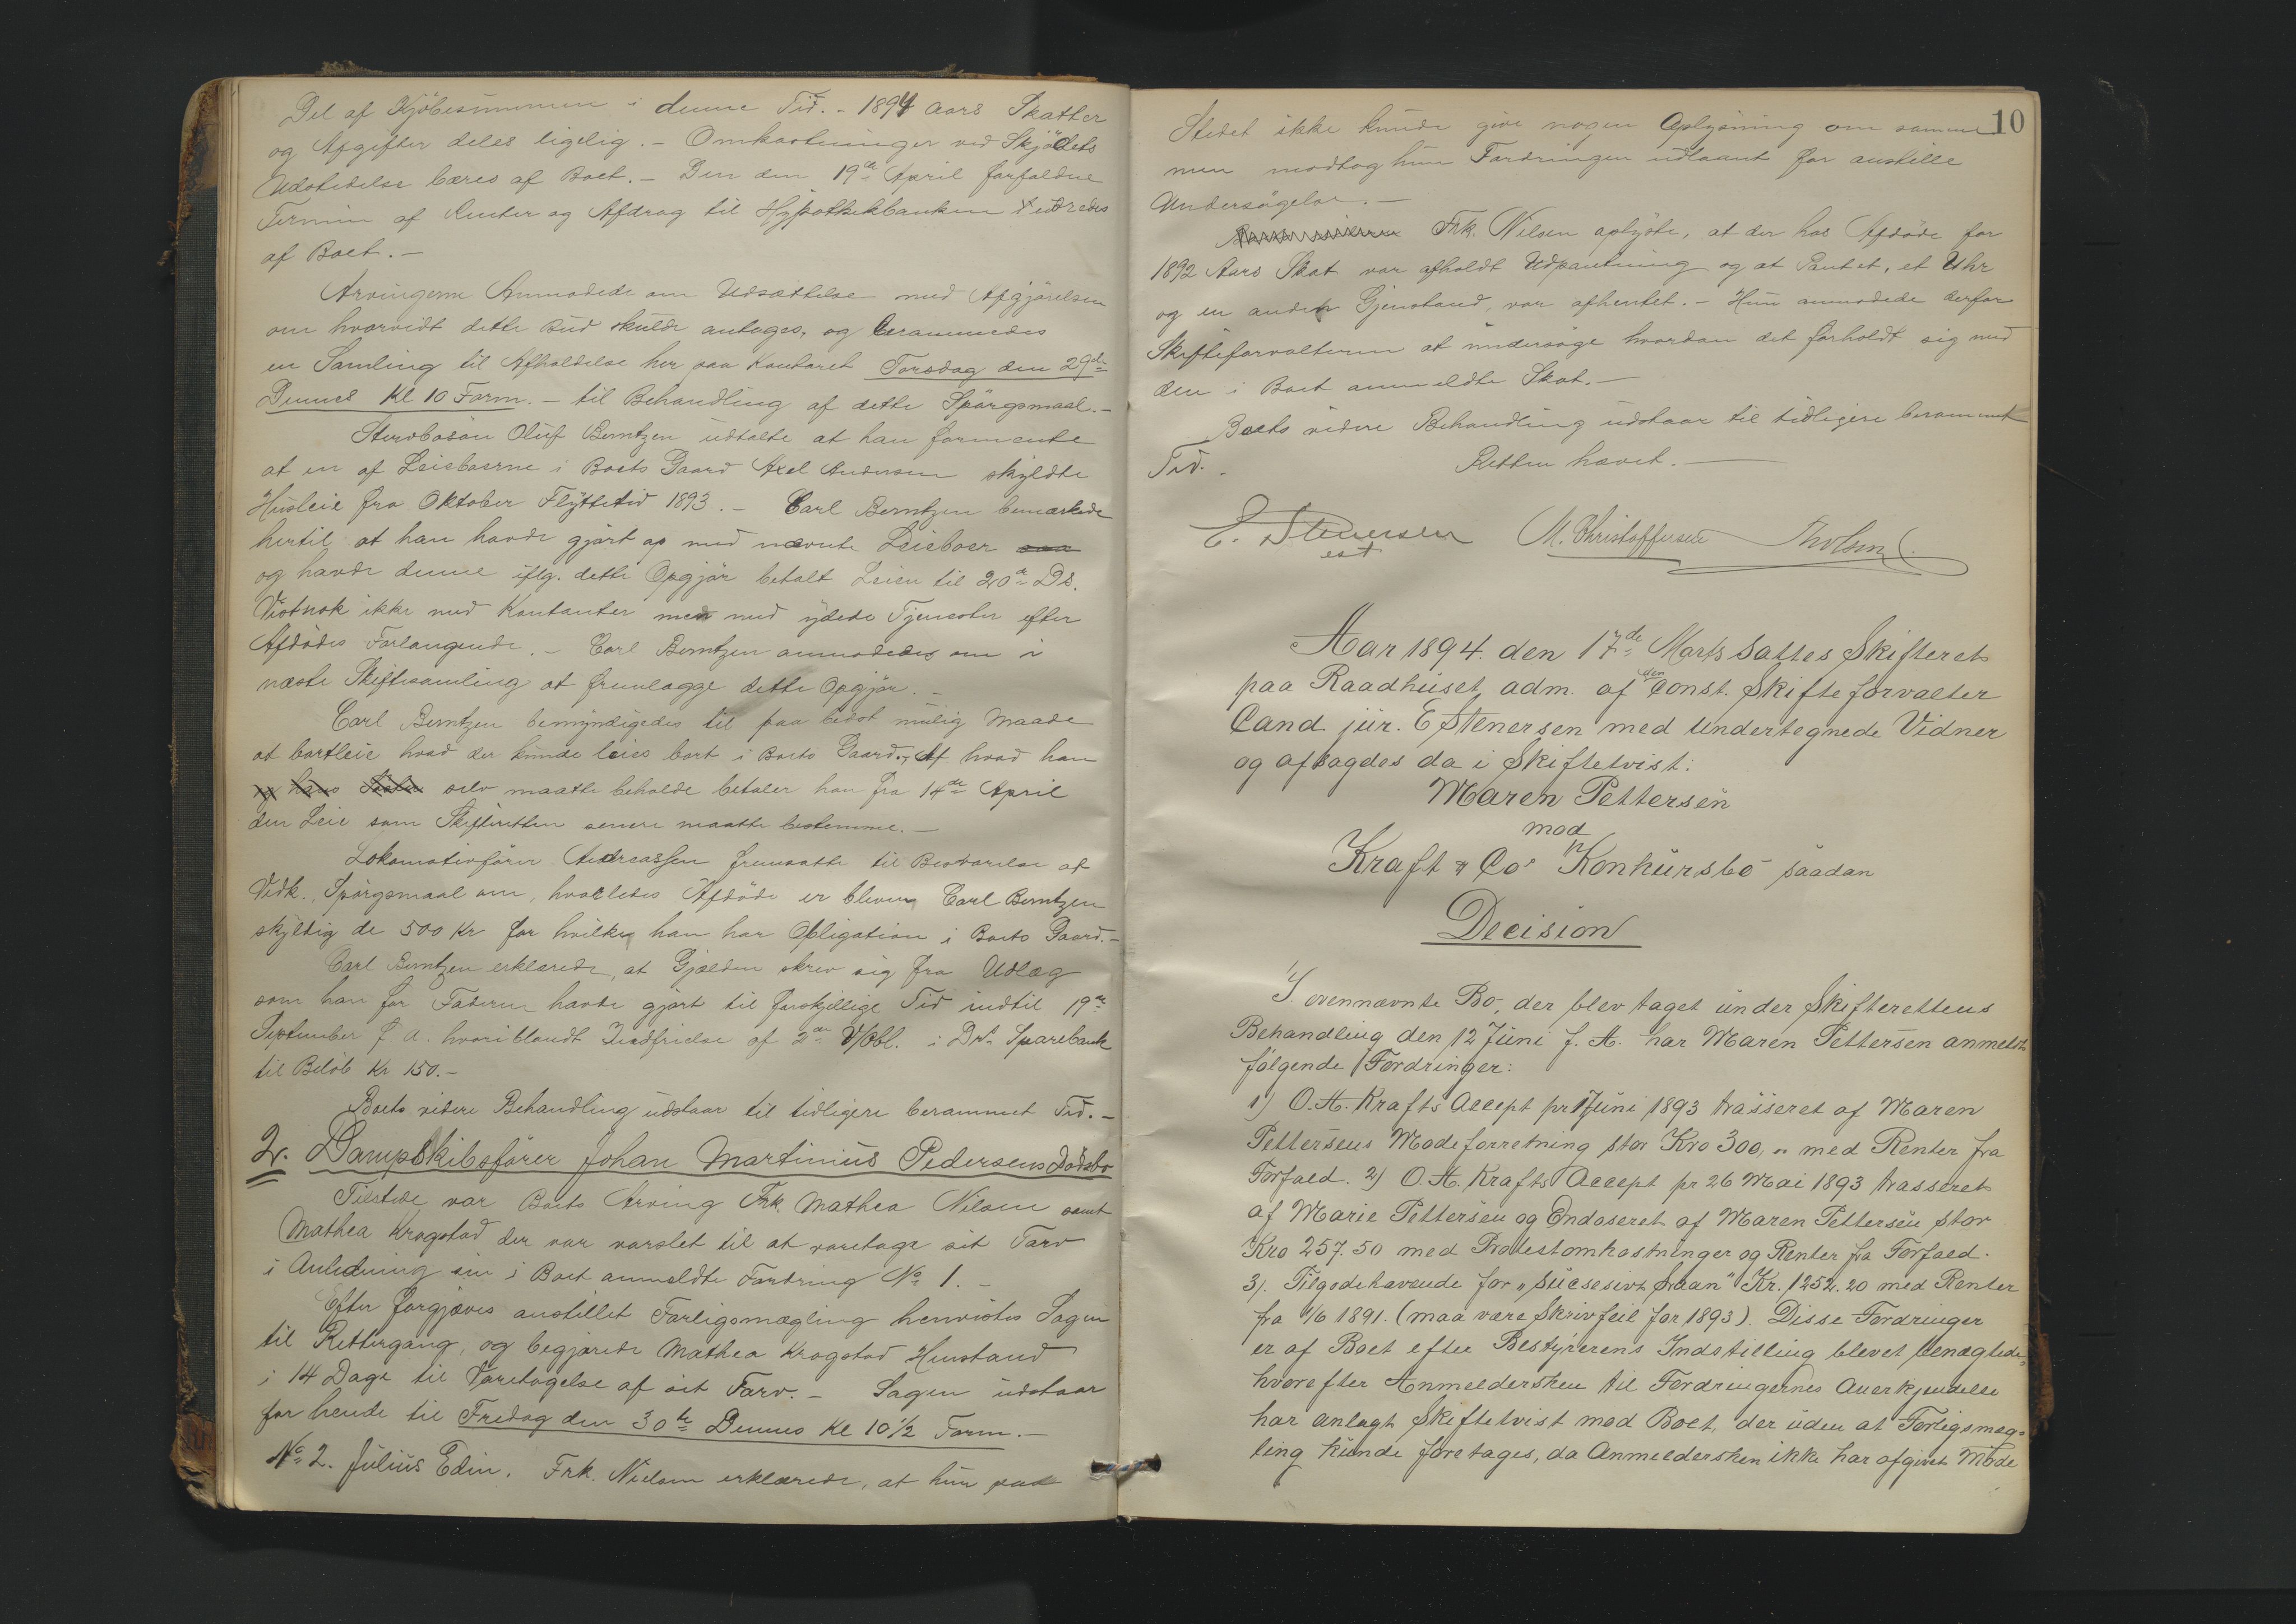 Del af Kjöbesummen i denne Tid. - 1894 Aars Skatter
og Afgifter deles ligelig. - Omkostninger ved Skjödets
Udstedelse bæres af Boet. - Den den 19de April forfaldne
Termin af Renter og Afdrag til Hypothekbanken udredes
af Boet. -
Arvingerne Anmodede om Udsættelse med Afgjörelsen
om hvorvidt dette Bud skulde antages, og berammedes
en Samling til Afholdelse her paa Kontoret Torsdag den 29de
Dennes Kl 10 Form. - til Behandling af dette Spörgsmaal. -
Stervbosön Oluf Berntzen udtalte at han formente
at en af Leieboerne i Boets Gaard Axel Andersen skyldte
Husleie fra Oktober Flyttetid 1893. - Carl Berntzen bemærkede
hertil at han havde gjort op med nævnte Leieboer
og havde denne iflg. dette Opgjör betalt Leien til 20de Ds.
Vistnok ikke med Kontanter men med ydede Tjenester efter
Afdödes Forlangende. - Carl Berntzen anmodedes om i
næste Skiftesamling at fremlægge dette Opgjör. -
Carl Berntzen bemyndigedes til paa bedst mulig Maade
at bortleie hvad der kunde leies bort i Boets Gaard. Af hvad han
selv maatte beholde betaler han fra 14de April
den Leie som Skifteretten senere maatte bestemme. -
Lokomotivförer Andreassen fremsatte til Besvarelse af
Vedk. Spörgsmaal om, hvorledes Afdöde er bleven Carl Berntzen
skyldig de 500 Kr for hvilke han har Obligation i Boets Gaard. -
Carl Berntzen erklærede, at Gjælden skrev sig fra Udlæg
som han for Faderen havde gjort til forskjellige Tid indtil 19de
September f. A. hvoriblandt Indfrielse af 2den V/Obl. i Drs. Sparebank
til Belöb Kr 150. -
Boets videre Behandling udstaar til tidligere berammet Tid. -
2. Dampskibsförer Johan Martinius Pedersens Dödsbo
Tilstede var Boets Arving Frk. Mathea Nilsen samt
Mathea Krogstad der var varslet til at varetage sit Tarv
i Anledning sin i Boet anmeldte Fordring No 1. -
Efter forgjæves anstillet Forligsmægling henvistes Sagen
til Rettergang, og begjærede Mathea Krogstad Henstand
i 14 Dage til Varetagelse af sit Tarv. - Sagen udstaar
for hende til Fredag den 30te Dennes Kl 10 1/2 Form. -
No 2. Julius Edin. Frk. Nielsen erklærede, at hun paa
10
Stedet ikke kunde give nogen Oplysning om samme
men modtog hun Fordringen udlaant for anstille
Undersögelse. -
Frk. Nilsen oplyste, at der hos Afdöde for
1892 Aars Skat var afholdt Udpantning og at Pantet, et Uhr
og en anden Gjenstand, var afhentet. - Hun anmodede derfor
Skifteforvalteren at undersöge hvordan det forholdt sig med
den i Boet anmeldte Skat. -
Boets videre Behandling udstaar til tidligere berammet
Tid. - Retten hævet. -
E. Stenersen M. Christoffersen
cst
Aar 1894. den 17de Marts sattes Skifteret
paa Raadhuset, adm. af den const. Skifteforvalter
Cand. jur. E Stenersen med undertegnede Vidner
og afsagdes da i Skiftetvist:
Maren Pettersen
mod
Kraft & Cos Konkursbo saadan
Decision
I ovennævnte Bo, der blev taget under Skifterettens
Behandling den 12 Juni f. A. har Maren Pettersen anmeldt
fölgende Fordringer:
1) O. A. Krafts Accept pr 1 Juni 1893 trasseret af Maren
Pettersens Modeforretning stor Kro 300,,, med Renter fra
Forfald. 2) O. A. Krafts Accept pr 26 Mai 1893 trasseret
af Marie Pettersen og Endoseret af Maren Pettersen stor
Kro 257.50 med Protestomkostninger og Renter fra Forfald.
3). Tilgodehavende for "sucsesivt Laan" Kr. 1252.20 med Renter
fra 1/6 1891. (maa være Skrivfeil for 1893). Disse Fordringer
er af Boet efter Bestyrerens Indstilling blevet benægtede,
hvorefter Anmeldersken til Fordringernes Anerkjendelse
har anlagt Skiftetvist mod Boet, der uden at Forligsmæg-
ling kunde foretages, da Anmeldersken ikke har afgivet Möde